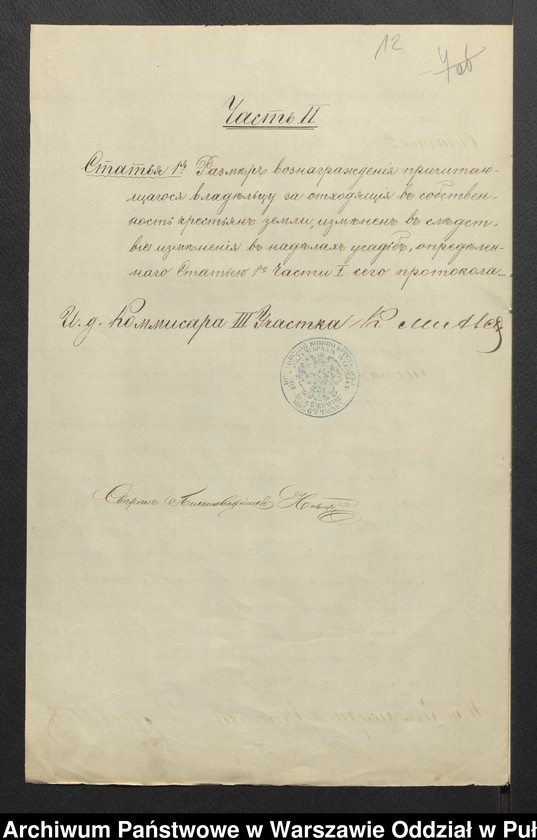 12
Часть II
Статья 1ая Размѣръ вознагражденія причитаю-
щагося владѣльцу за отходящія въ собствен-
ность крестьянъ земли, измѣненъ въ слѣдст-
віе измѣненія въ надѣлахъ усадьбъ, опредѣлен-
наго Статьею 1ю Части I сего протокола.
И. д. Коммисара III Участка
Свѣрилъ
Archiwum Państwowe w Warszawie Oddział w Puł